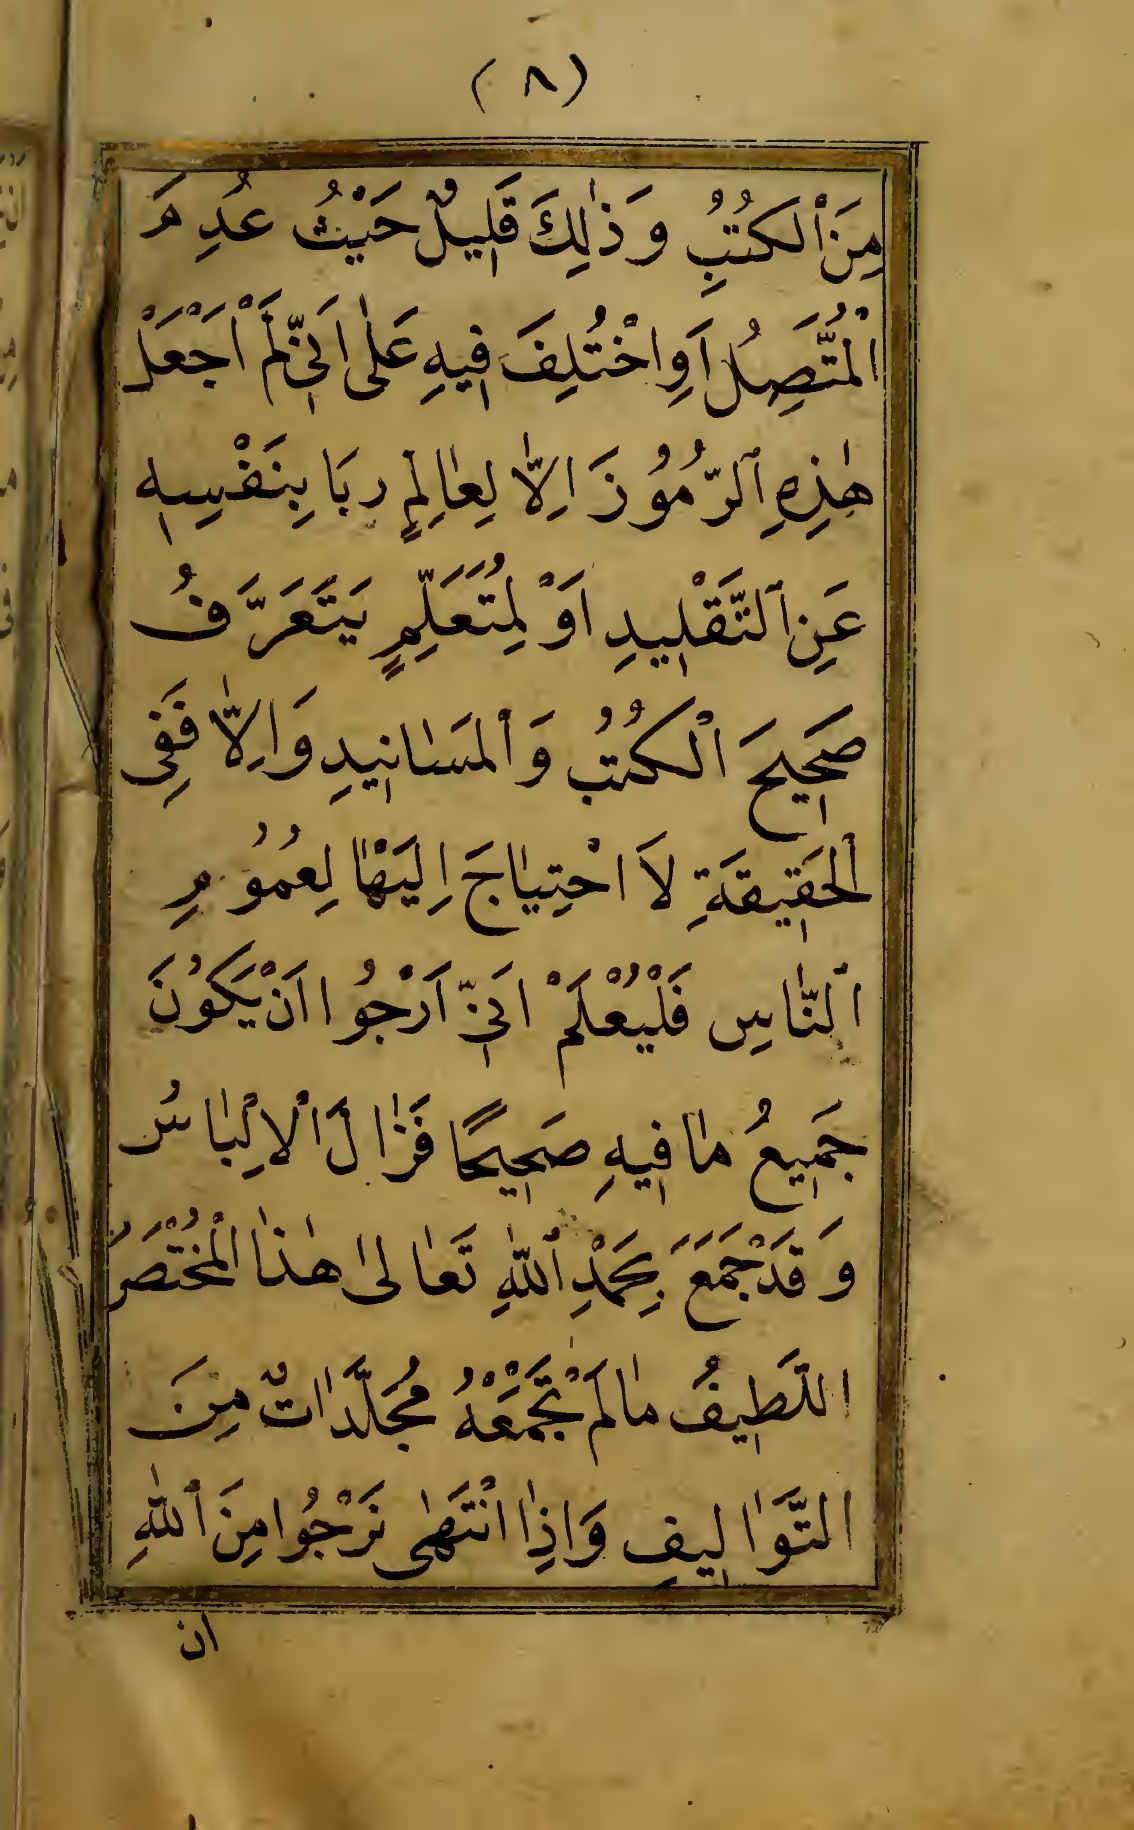 (٨)
مِنَ ٱلكُتُبِ وَذٰلِكَ قَلِيلٌ حَيْثُ عُدِمَ
الْمُتَّصِلُ اَوِاخْتُلِفَ فِيهِ عَلٰى اَنِّى لَمْ اَجْعَلْ
هٰذِهِ ٱلرُّمُوُزَ اِلاّٰ لِعٰالِمٍ رَبَا بِنَفْسِهِ
عَنِ ٱلتَّقْلِيدِ اَوْ لِمُتَعَلِّمٍ يَتَعَرَّفُ
صَحِيحَ الْكُتُبُ وَٱلمَسٰانِيدِ وَاِلاّٰ فَفِى
ٱلحَقِيقَةِ لاَ احْتِيٰاجَ اِلَيْهٰا لِعُمُوُمِ
ٱلنّٰاسِ فَلْيُعْلَمْ اَنِّى اَرْجُوا اَنْ يَكوُنَ
جَمِيعُ مٰا فِيهِ صَحِيحًا فَزٰالَ اْلاِلْبٰاسُ
وَقَدْ جَمَعَ بِحَمْدِ ٱللّٰهِ تَعٰالىٰ هٰذٰا الْمُخْتَصَرُ
اللَّطِيفُ مٰالَمْ تَجْمَعْهُ مُجَلَّدٰاتٌ مِنَ
التَّوٰالِيفِ وَاِذٰا انْتَهٰى نَرْجُوا مِنَ ٱللّٰهِ
ان